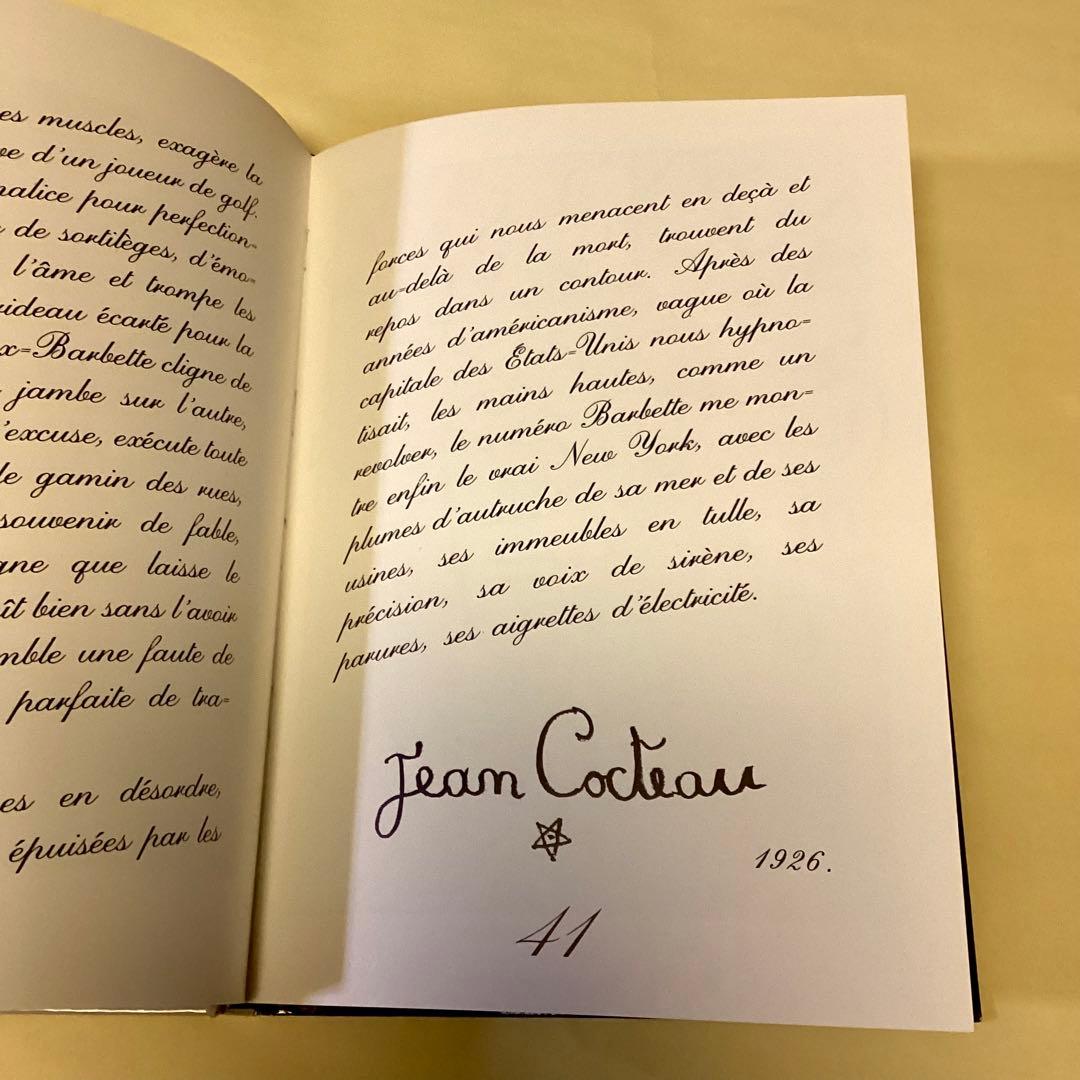 es muscles, exagère la
ve d'un joueur de golf.
malice pour perfection=
de sortilèges, d'émo=
l'âme et trompe les
rideau écarté pour la
x=Barbette cligne de
jambe sur l'autre,
'excuse, exécute toute
le gamin des rues,
souvenir de fable,
gne que laisse le
ît bien sans l'avoir
mble une faute de
parfaite de tra=
es en désordre,
épuisées par les
forces qui nous menacent en deçà et
au=delà de la mort, trouvent du
repos dans un contour. Après des
années d'américanisme, vague où la
capitale des États=Unis nous hypno=
tisait, les mains hautes, comme un
revolver, le numéro Barbette me mon=
tre enfin le vrai New York, avec les
plumes d'autruche de sa mer et de ses
usines, ses immeubles en tulle, sa
précision, sa voix de sirène, ses
parures, ses aigrettes d'électricité.
Jean Cocteau
1926.
41